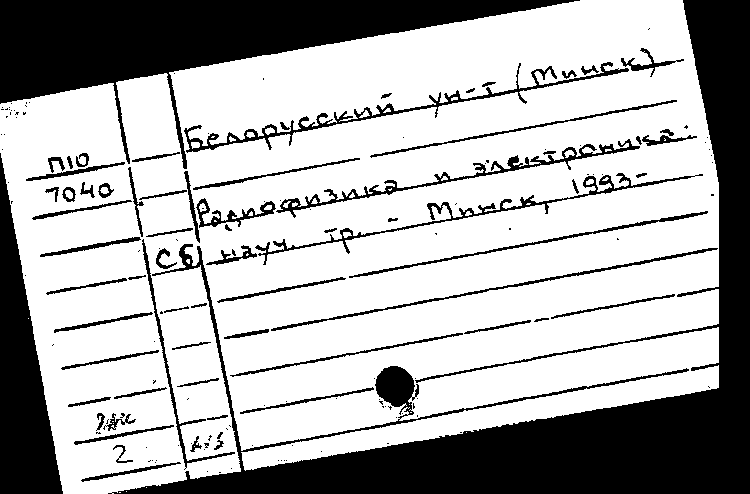 Белорусский ун-т (Минск)
П10
7040
Радиофизика и электроника:
Сб науч. тр. - Минск, 1993-
2